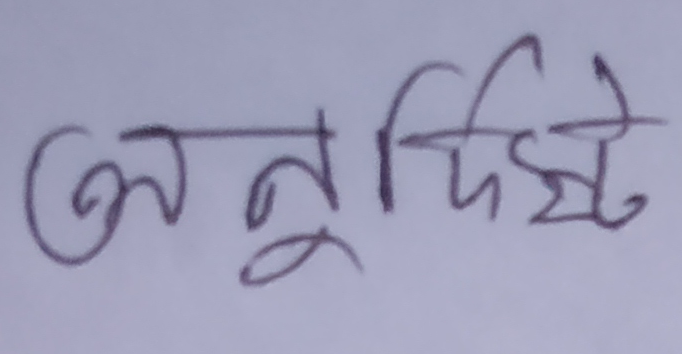 অনুর্দিষ্ট